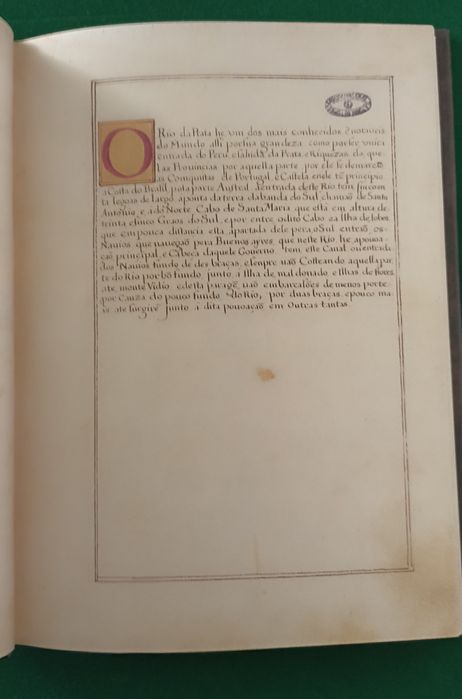 O Rio da Prata he um dos mais conhecidos e notaveis
do Mundo assi por sua grandeza como por ser unica
entrada do Peru, e sahida da Prata, e Riquezas da que-
las Provincias por aquella parte por elle se demarcão
as Conquistas de Portugal, e Castela e nele te principio
a Costa do Brasil pola parte Austral. A entrada deste Rio tem sincoen-
ta legoas de largo a ponta da terra da banda do Sul chamão de Santo
Antonio, e a do Norte Cabo de Santa Maria que esta em altura de
trinta e sinco Graos do Sul, e por entre o dito Cabo e a Ilha de lobos
que em pouca distancia esta apartada dele pera o Sul entrão os
Navios que navegão pera Buenos ayres, que neste Rio he a povoa-
ção principal, e Cabeça daquele Governo tem este Canal ou entrada
dos Navios fundo de des braças, e sempre vão Costeando aquella par-
te do Rio por bõ fundo junto a Ilha de maldonado, e Ilhas de flores
ate monte Vidio e desta parage vão embarcaões de menos porte
por Cauza do pouco fundo do Rio, por duas braças, e pouco ma-
is ate surgire junto a dita povoação em outras tantas.